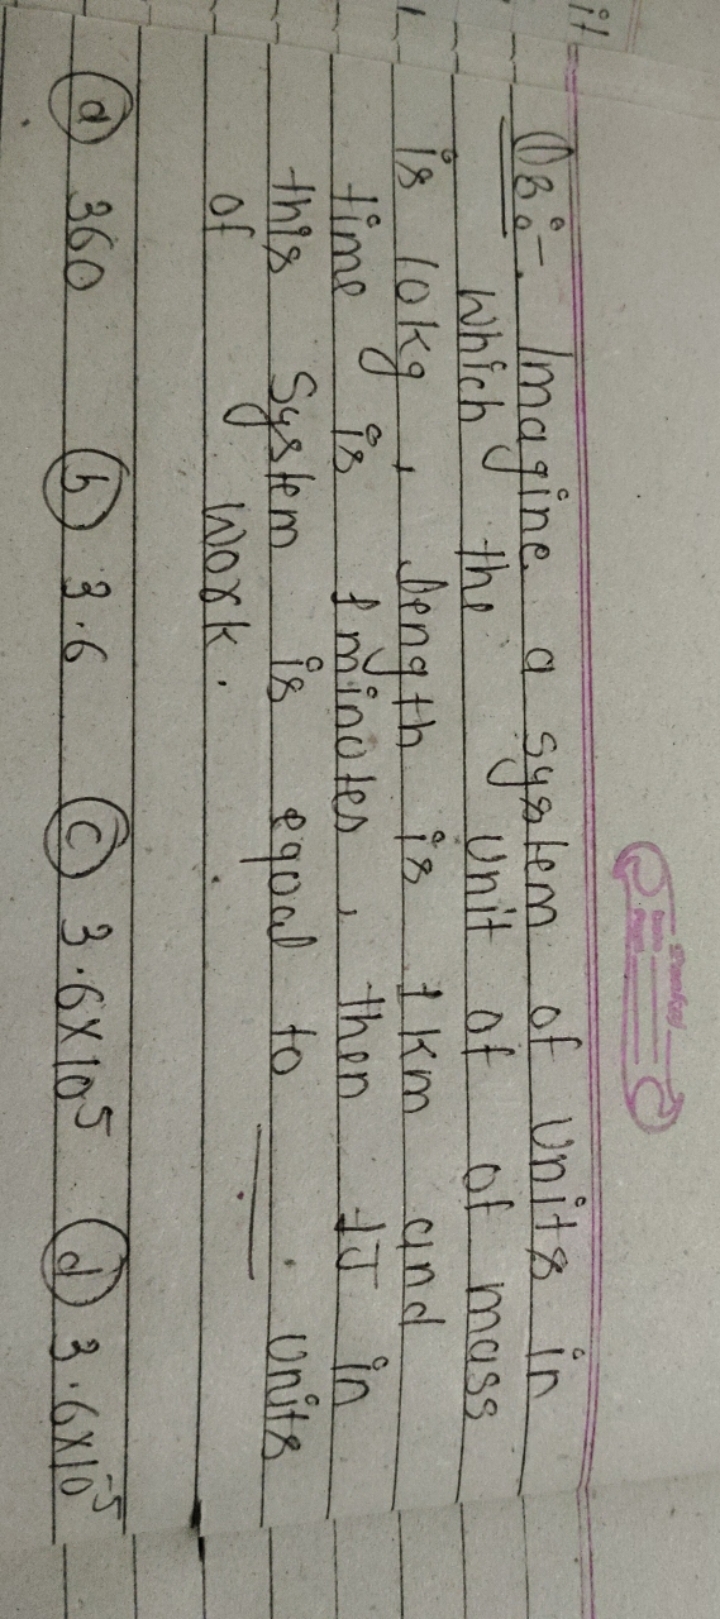 Q8:- Imagine a system of units in
which the unit of of mass
is 10kg, length is 1km and
time is 1minutes, then 1J in
this system is equal to ____. units
of work.
(a) 360 (b) 3.6 (c) 3.6x10^5 (d) 3.6x10^-5